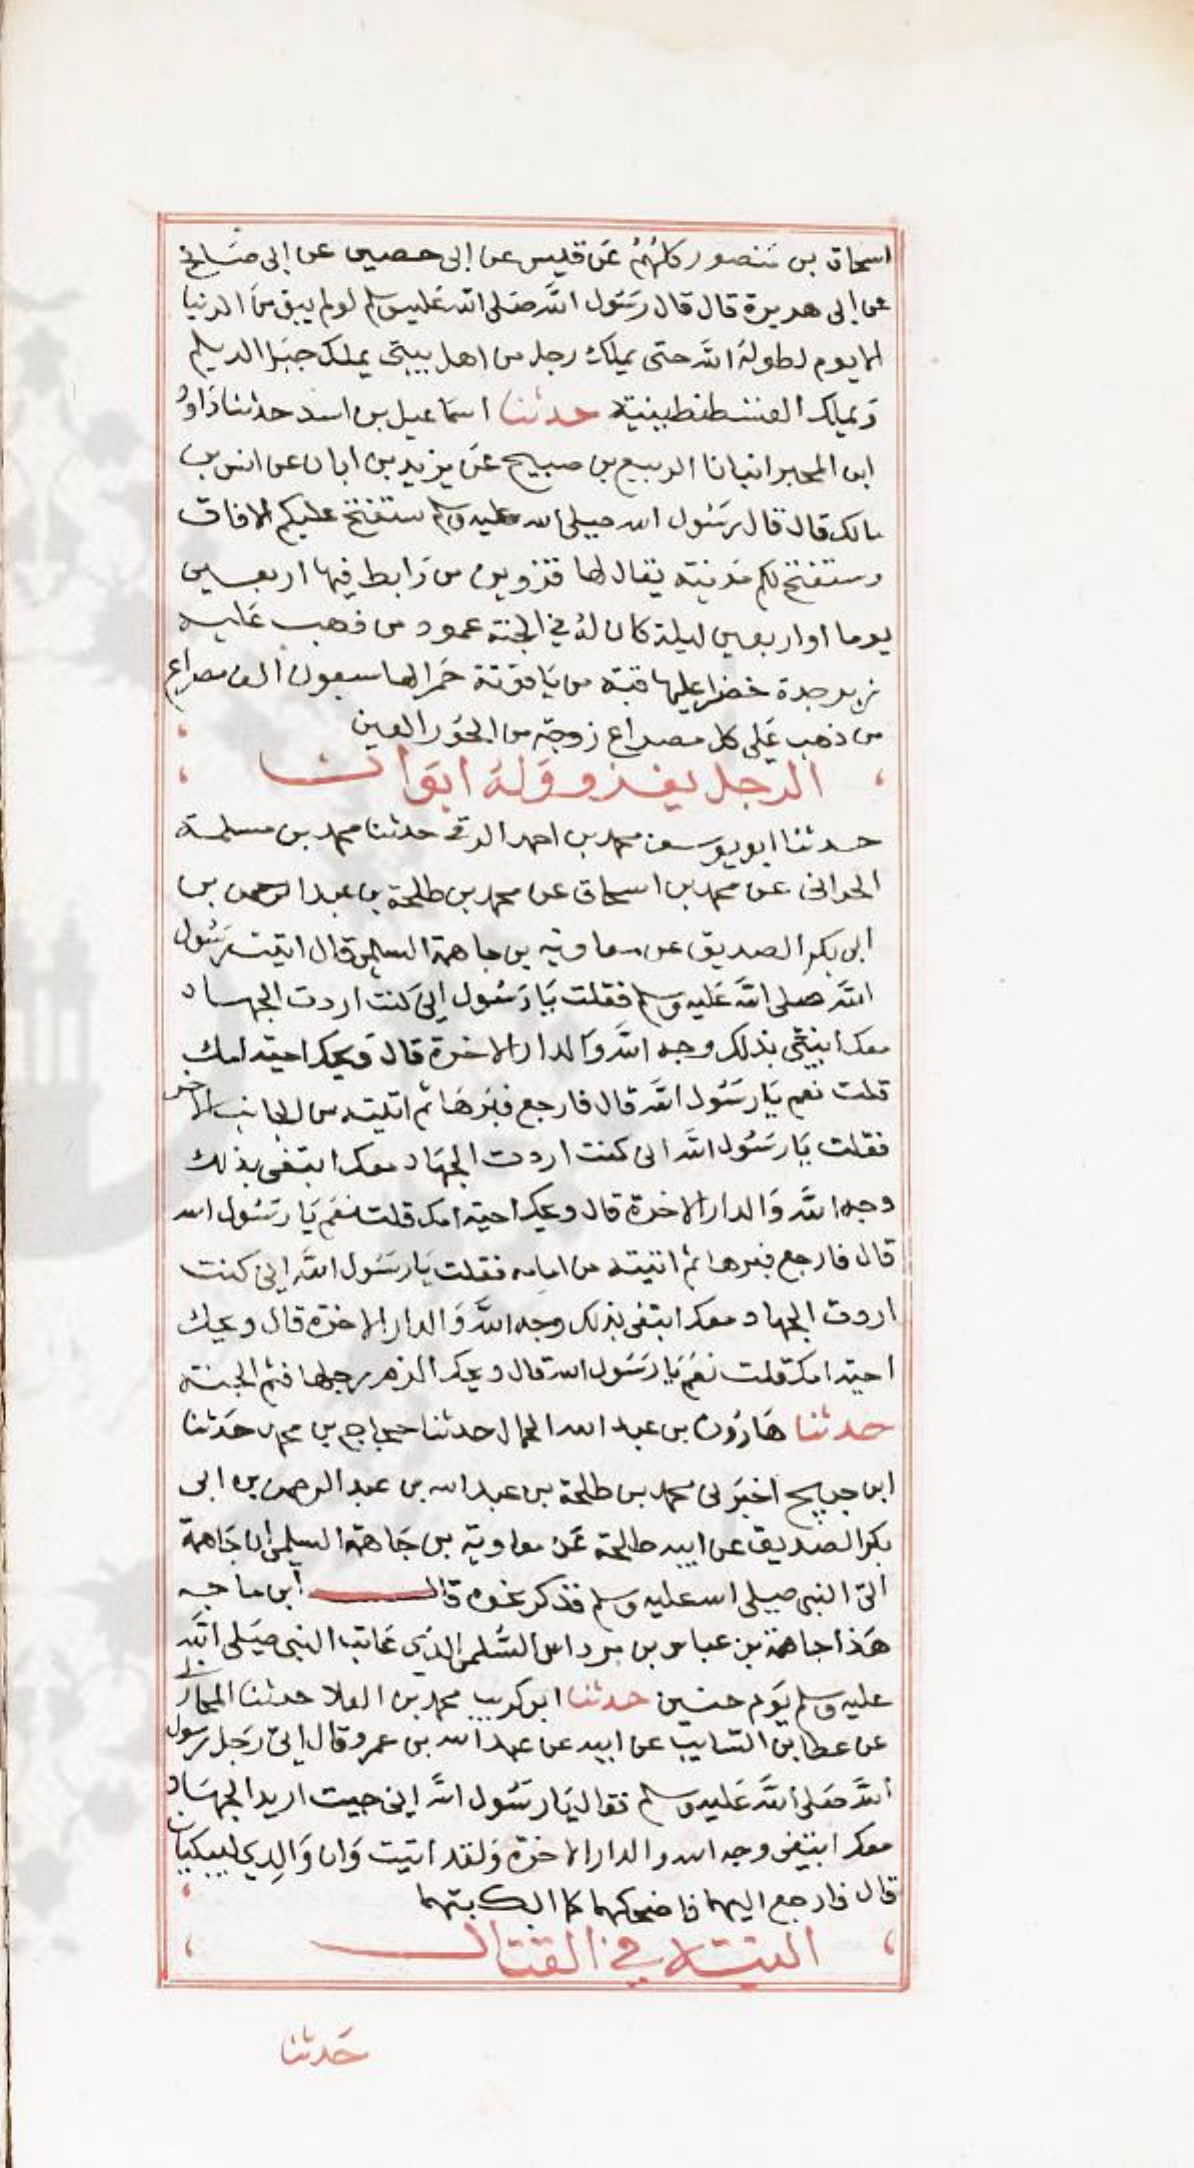 اسحاق بن منصور كلهم عن قيس عن ابى حصين عن ابى صالح
عن ابى هريرة قال قال رسول الله صلى الله عليه وسلم لو لم يبق من الدنيا
الا يوم لطوله الله حتى يملك رجل من اهل بيتى يملك جبرا الديلم
ويملك القسطنطينية حدثنا اسماعيل بن اسد حدثنا داود
ابن المحبر انبانا الربيع بن صبيح عن يزيد بن ابان عن انس بن
مالك قال قال رسول الله صلى الله عليه وسلم ستفتح عليكم الافاق
وستفتح لكم مدينة يقال لها قزوين من رابط فيها اربعين
يوما او اربعين ليلة كان له في الجنة عمود من ذهب عليه
زبرجدة خضرا عليها قبة من ياقوتة حمرا لها سبعون الف مصراع
من ذهب على كل مصراع زوجة من الحور العين
الرجل يغزو وله ابوان
حدثنا ابو يوسف محمد بن احمد الرقى حدثنا محمد بن مسلمة
الحرانى عن محمد بن اسحاق عن محمد بن طلحة بن عبد الرحمن بن
ابى بكر الصديق عن معاوية بن جاهمة السلمى قال اتيت رسول
الله صلى الله عليه وسلم فقلت يا رسول انى كنت اردت الجهاد
معك ابتغى بذلك وجه الله والدار الاخرة قال ويحك احية امك
قلت نعم يا رسول الله قال فارجع فبرها ثم اتيته من الجانب الاخر
فقلت يا رسول الله انى كنت اردت الجهاد معك ابتغى بذلك
وجه الله والدار الاخرة قال ويحك احية امك قلت نعم يا رسول الله
قال فارجع فبرها ثم اتيته من امامه فقلت يا رسول الله انى كنت
اردت الجهاد معك ابتغى بذلك وجه الله والدار الاخرة قال ويحك
احية امك قلت نعم يا رسول الله قال ويحك الزم رجلها فثم الجنة
حدثنا هارون بن عبد الله الحمال حدثنا حجاج بن محمد حدثنا
ابن جريج اخبرنى محمد بن طلحة بن عبد الله بن عبد الرحمن بن ابى
بكر الصديق عن ابيه طلحة عن معاوية بن جاهمة السلمى ان جاهمة
اتى النبى صلى الله عليه وسلم فذكر نحوه قال ابن ماجه
هذا جاهمة بن عباس بن مرداس السلمى الذى عاتب النبى صلى الله
عليه وسلم يوم حنين حدثنا ابو كريب محمد بن العلا حدثنا المحاربى
عن عطا بن السايب عن ابيه عن عبد الله بن عمرو قال اتى رجل رسول
الله صلى الله عليه وسلم فقال يا رسول الله انى جيت اريد الجهاد
معك ابتغى وجه الله والدار الاخرة ولقد اتيت وان والدي ليبكيان
قال فارجع اليهما فاضحكهما كما ابكيتهما
النية في القتال
حدثنا